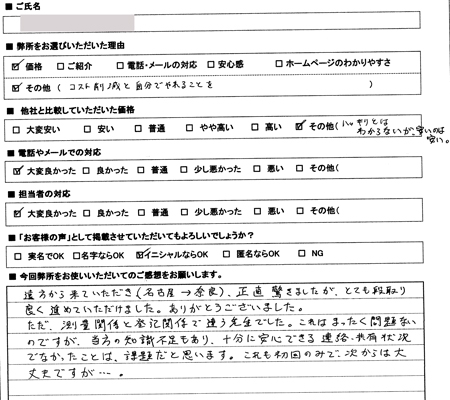 ■ ご氏名
■ 弊所をお選びいただいた理由
☑ 価格 □ ご紹介 □ 電話・メールの対応 □ 安心感 □ ホームページのわかりやすさ
☑ その他 ( コスト削減と自分でやれることを )
■ 他社と比較していただいた価格
□ 大変安い □ 安い □ 普通 □ やや高い □ 高い ☑ その他( ハッキリとは
わからないが、安いのは
安い。
■ 電話やメールでの対応
☑ 大変良かった □ 良かった □ 普通 □ 少し悪かった □ 悪い □ その他(
■ 担当者の対応
☑ 大変良かった □ 良かった □ 普通 □ 少し悪かった □ 悪い □ その他(
■ 「お客様の声」として掲載させていただいてもよろしいでしょうか?
□ 実名でOK □ 名字ならOK ☑ イニシャルならOK □ 匿名ならOK □ NG
■ 今回弊所をお使いいただいてのご感想をお願いします。
遠方から来ていただき(名古屋→奈良)、正直驚きましたが、とても段取り
良く進めていただけました。ありがとうございました。
ただ、測量関係と登記関係で違う先生でした。これはまったく問題ない
のですが、当方の知識不足もあり、十分に安心できる連絡、共有状況
でなかったことは、課題だと思います。これも初回のみで、次からは大
丈夫ですが…。